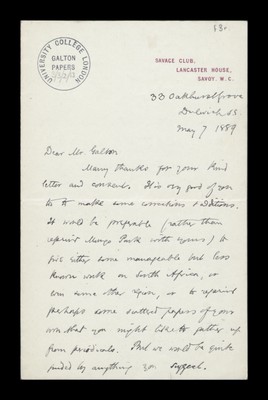 UNIVERSITY COLLEGE LONDON
GALTON
PAPERS
SAVAGE CLUB,
LANCASTER HOUSE,
SAVOY. W.C.
33 Oakhurst Grove
Dulwich SE.
May 7 1889
Dear Mr. Galton
Many thanks for your kind
letter and consent. It is very good of you
to make some corrections & additions.
It would be preferable (rather than
reprint Mungo Park with yours) to
give either some manageable but less
known work on South Africa, or
even some other region, or to reprint
perhaps some scattered papers of your
own that you might like to gather up
from periodicals. But we would be quite
guided by anything you suggest.